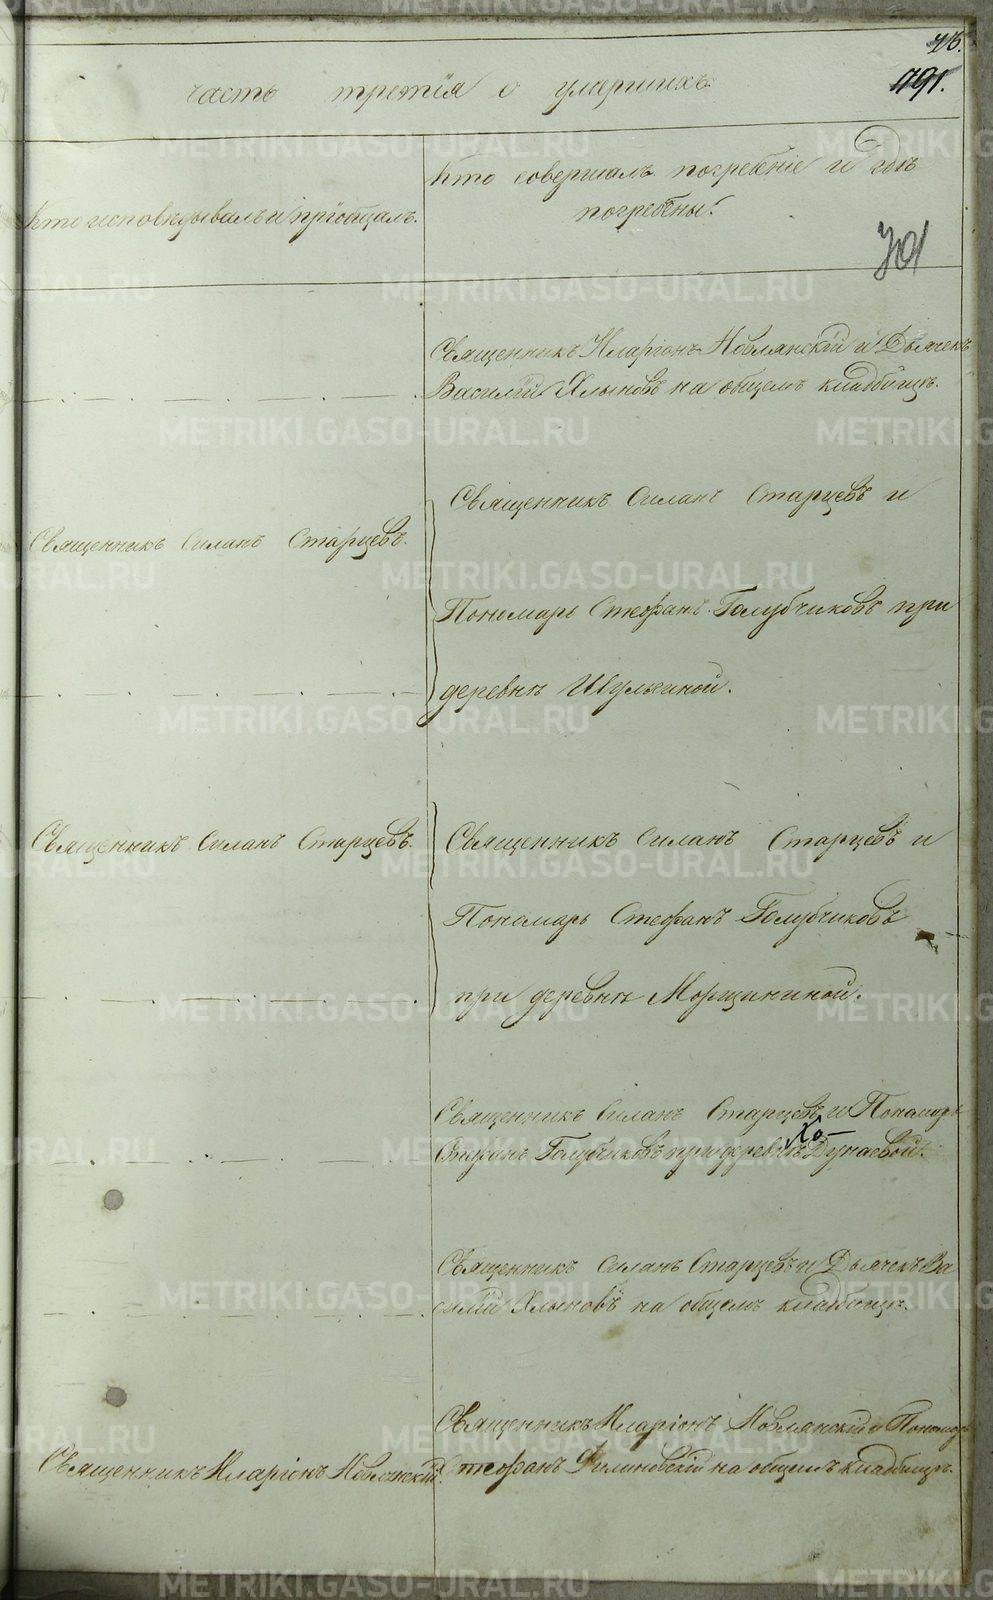 791.
часть третія о умершихъ
Кто исповѣдывалъ и пріобщалъ.
Кто совершалъ погребеніе и гдѣ
погребены.
701
Священникъ Иларіонъ Новлянскій и Дьячекъ
Василій Хлыновъ на общемъ кладбищѣ.
Священникъ Силанъ Старцевъ.
Священникъ Силанъ Старцевъ и
Пономарь Стефанъ Голубчиковъ при
деревнѣ Шульгиной.
Священникъ Силанъ Старцевъ.
Священникъ Силанъ Старцевъ и
Пономарь Стефанъ Голубчиковъ
при деревнѣ Морщининой.
Священникъ Силанъ Старцевъ и Пономарь
Стефанъ Голубчиковъ при деревнѣ Дунаевой.
Священникъ Силанъ Старцевъ и Дьячекъ Ва
силій Хлыновъ на общемъ кладбищѣ.
Священникъ Иларіонъ Новлянскій.
Священникъ Иларіонъ Новлянскій и Пономарь
на общемъ кладбищѣ.
METRIKI.GASO-URAL.RU